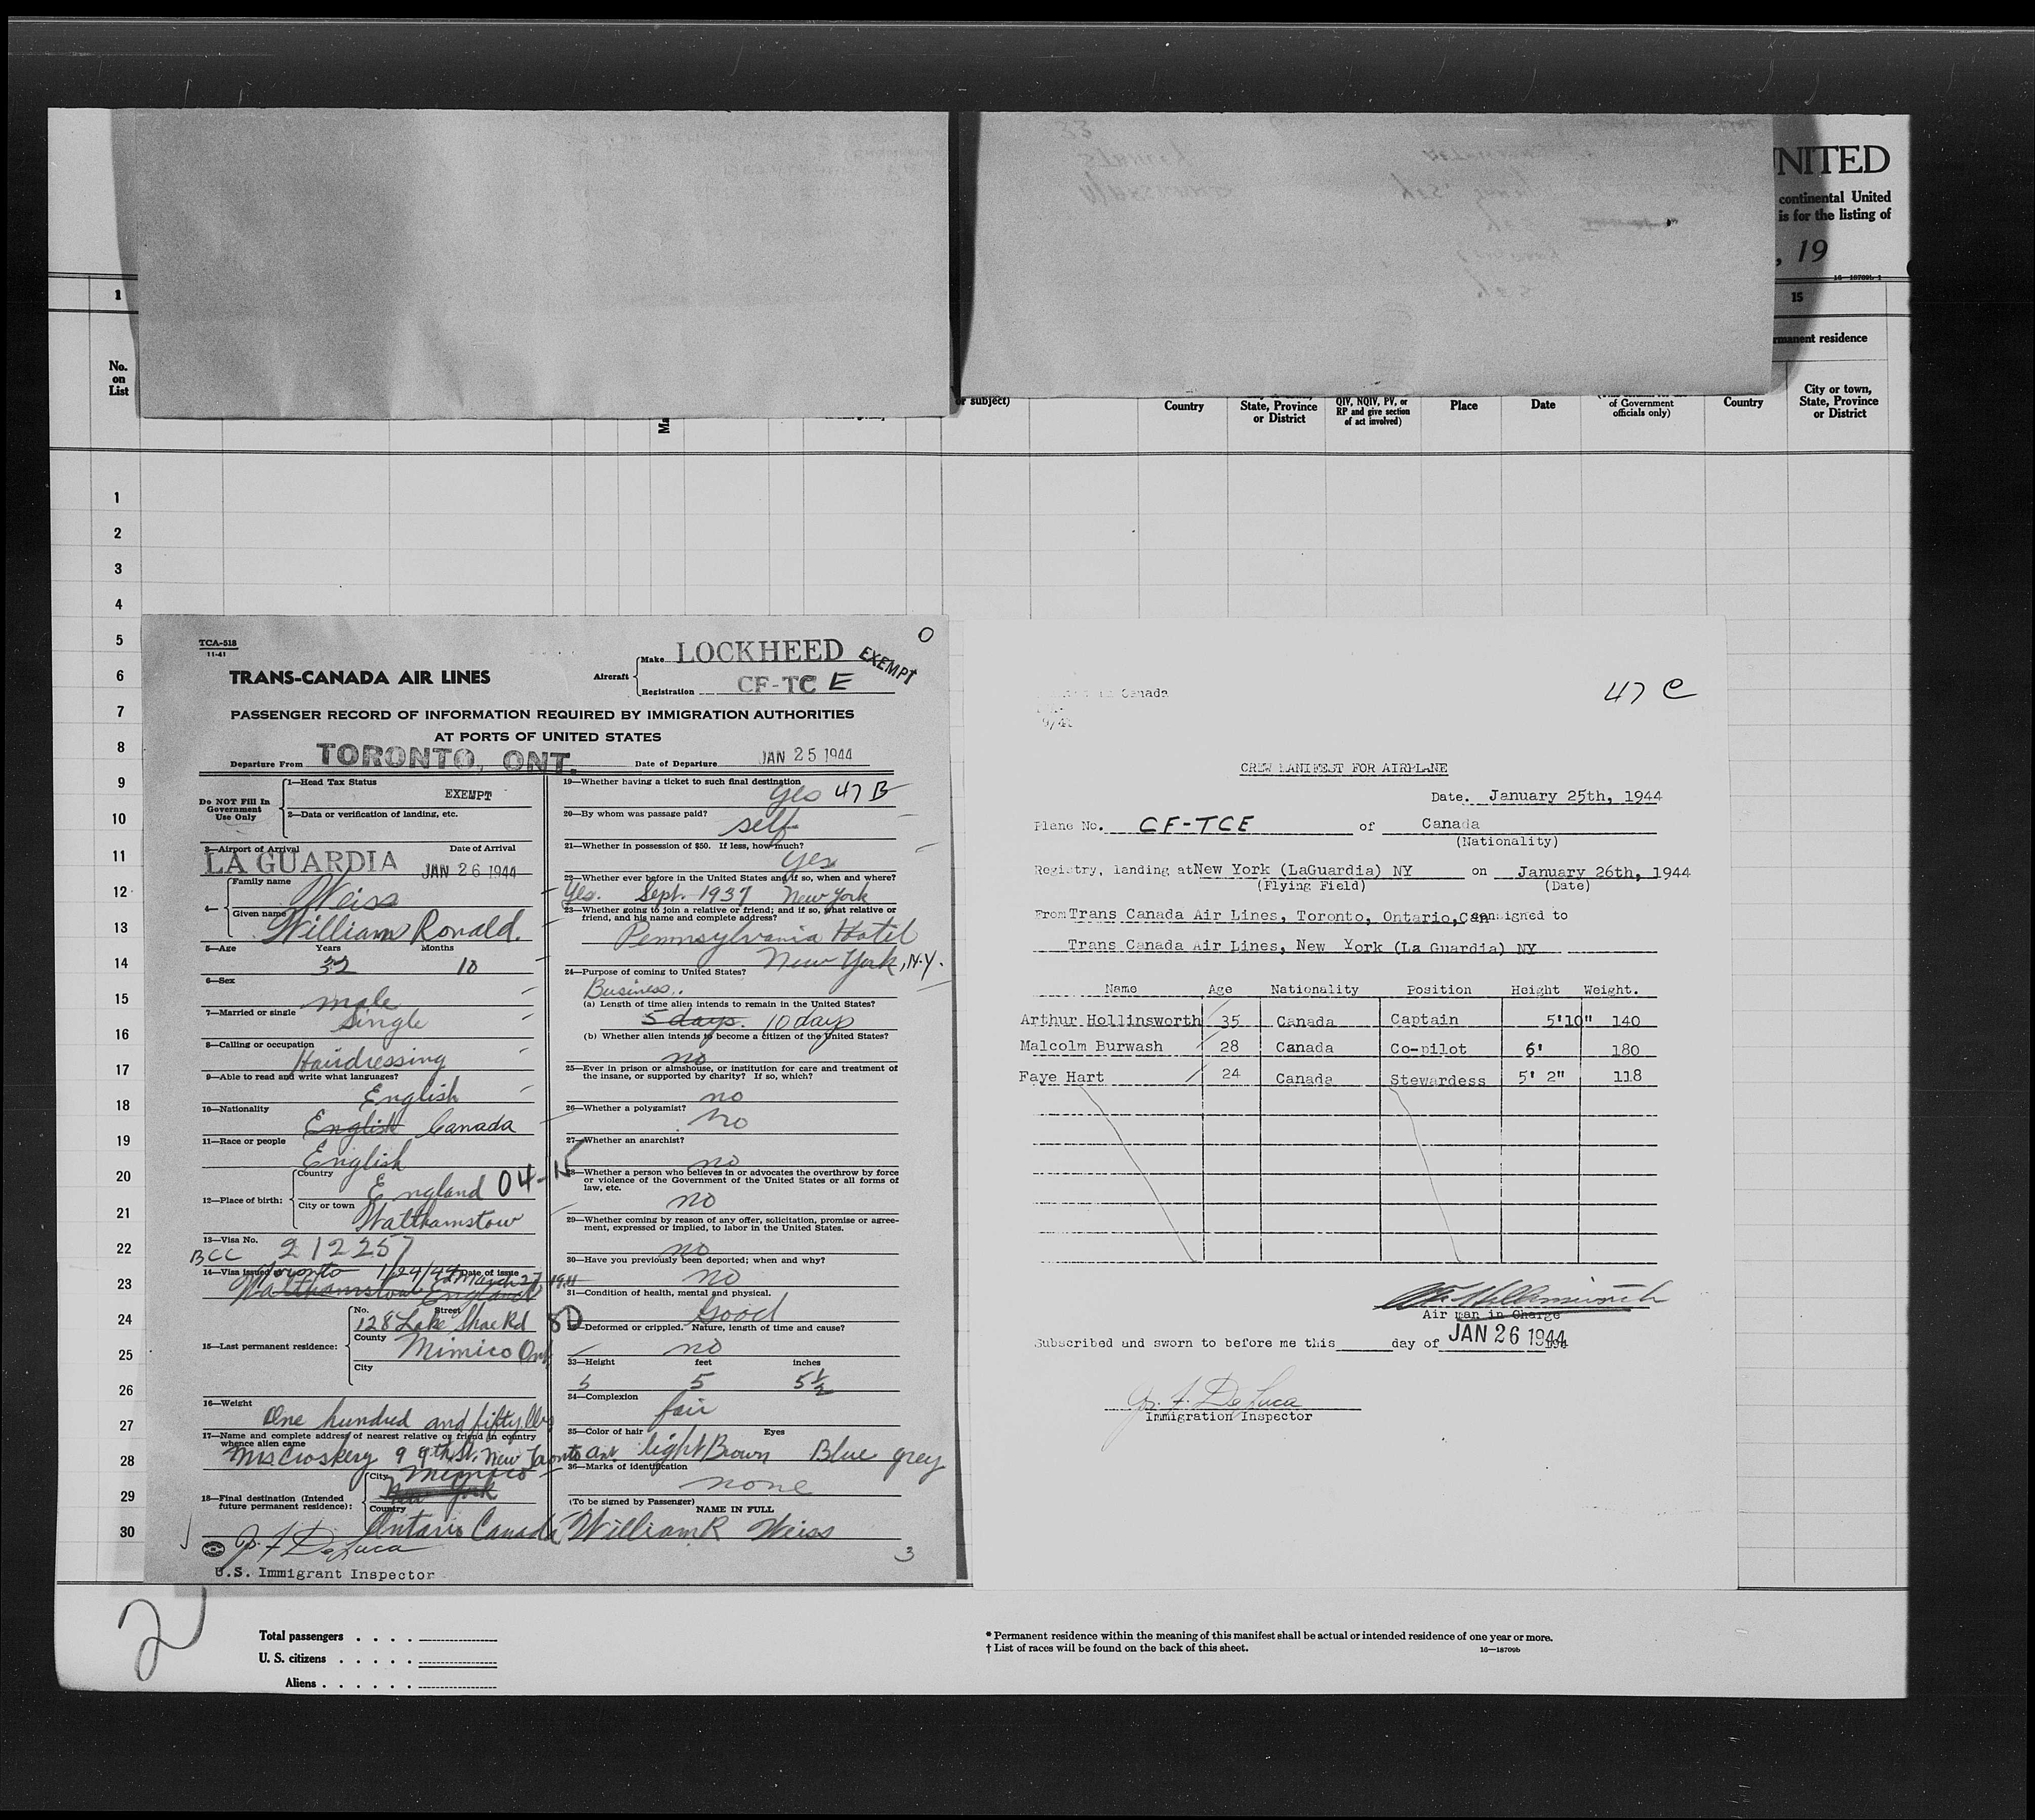 UNITED
continental United
is for the listing of
, 19
16—18709b-1
1
15
rmanent residence
No.
on
List
or subject)
Country
State, Province
or District
QIV, NQIV, PV, or
RP and give section
of act involved)
Place
Date
of Government
officials only)
Country
City or town,
State, Province
or District
1
2
3
4
5
6
7
8
9
10
11
12
13
14
15
16
17
18
19
20
21
22
23
24
25
26
27
28
29
30
TCA-518
11-41
O
TRANS-CANADA AIR LINES
Aircraft
Make LOCKHEED EXEMPT
Registration CF-TC E
PASSENGER RECORD OF INFORMATION REQUIRED BY IMMIGRATION AUTHORITIES
AT PORTS OF UNITED STATES
Departure From TORONTO, ONT. Date of Departure JAN 25 1944
Do NOT Fill In
Government
Use Only
1—Head Tax Status
EXEMPT
2—Data or verification of landing, etc.
3—Airport of Arrival Date of Arrival
LA GUARDIA JAN 26 1944
4—
Family name
Weiss
Given name
William Ronald.
5—Age Years Months
32 10
6—Sex
male
7—Married or single
Single
8—Calling or occupation
Hairdressing
9—Able to read and write what languages?
English
10—Nationality
English Canada
11—Race or people
English
12—Place of birth:
Country
England 04-15
City or town
Walthamstow
13—Visa No.
BCC 212257
14—Visa issued at Toronto 1/24/44 Date of issue
March 27 1911
Walthamstow England
15—Last permanent residence:
No. Street
128 Lake Shore Rd SD
County
Mimico Ont
City
16—Weight
One hundred and fifty lbs
17—Name and complete address of nearest relative or friend in country
whence alien came
Mrs Croskery 9 9th St. New Toronto Ont
18—Final destination (Intended
future permanent residence):
City Mimico
New York
Country
Ontario Canada
Jos. F. DeLuca
U.S. Immigrant Inspector
19—Whether having a ticket to such final destination
yes 47 B
20—By whom was passage paid?
self
21—Whether in possession of $50. If less, how much?
yes
22—Whether ever before in the United States and if so, when and where?
Yes. Sept. 1937 New York
23—Whether going to join a relative or friend; and if so, what relative or
friend, and his name and complete address?
Pennsylvania Hotel
New York, N.Y.
24—Purpose of coming to United States?
Business.
(a) Length of time alien intends to remain in the United States?
5 days. 10 days
(b) Whether alien intends to become a citizen of the United States?
no
25—Ever in prison or almshouse, or institution for care and treatment of
the insane, or supported by charity? If so, which?
no
26—Whether a polygamist?
no
27—Whether an anarchist?
no
28—Whether a person who believes in or advocates the overthrow by force
or violence of the Government of the United States or all forms of
law, etc.
no
29—Whether coming by reason of any offer, solicitation, promise or agree-
ment, expressed or implied, to labor in the United States.
no
30—Have you previously been deported; when and why?
no
31—Condition of health, mental and physical.
Good
32—Deformed or crippled. Nature, length of time and cause?
no
33—Height feet inches
5 5 5½
34—Complexion
fair
35—Color of hair Eyes
light Brown Blue grey
36—Marks of identification
none
(To be signed by Passenger)
NAME IN FULL
William R Weiss
3
47 C
in Canada
9/42
CREW MANIFEST FOR AIRPLANE
Date. January 25th, 1944
Plane No. CF-TCE of Canada
(Nationality)
Registry, landing at New York (LaGuardia) NY on January 26th, 1944
(Flying Field) (Date)
From Trans Canada Air Lines, Toronto, Ontario, Can consigned to
Trans Canada Air Lines, New York (La Guardia) NY
Name Age Nationality Position Height Weight.
Arthur Hollinsworth 35 Canada Captain 5'10" 140
Malcolm Burwash 28 Canada Co-pilot 6' 180
Faye Hart 24 Canada Stewardess 5' 2" 118
Air man in Charge
Subscribed and sworn to before me this day of JAN 26 1944 194
Jos. F. DeLuca
Immigration Inspector
2
Total passengers . . . .
U. S. citizens . . . . .
Aliens . . . . . .
* Permanent residence within the meaning of this manifest shall be actual or intended residence of one year or more.
† List of races will be found on the back of this sheet.
16—18709b